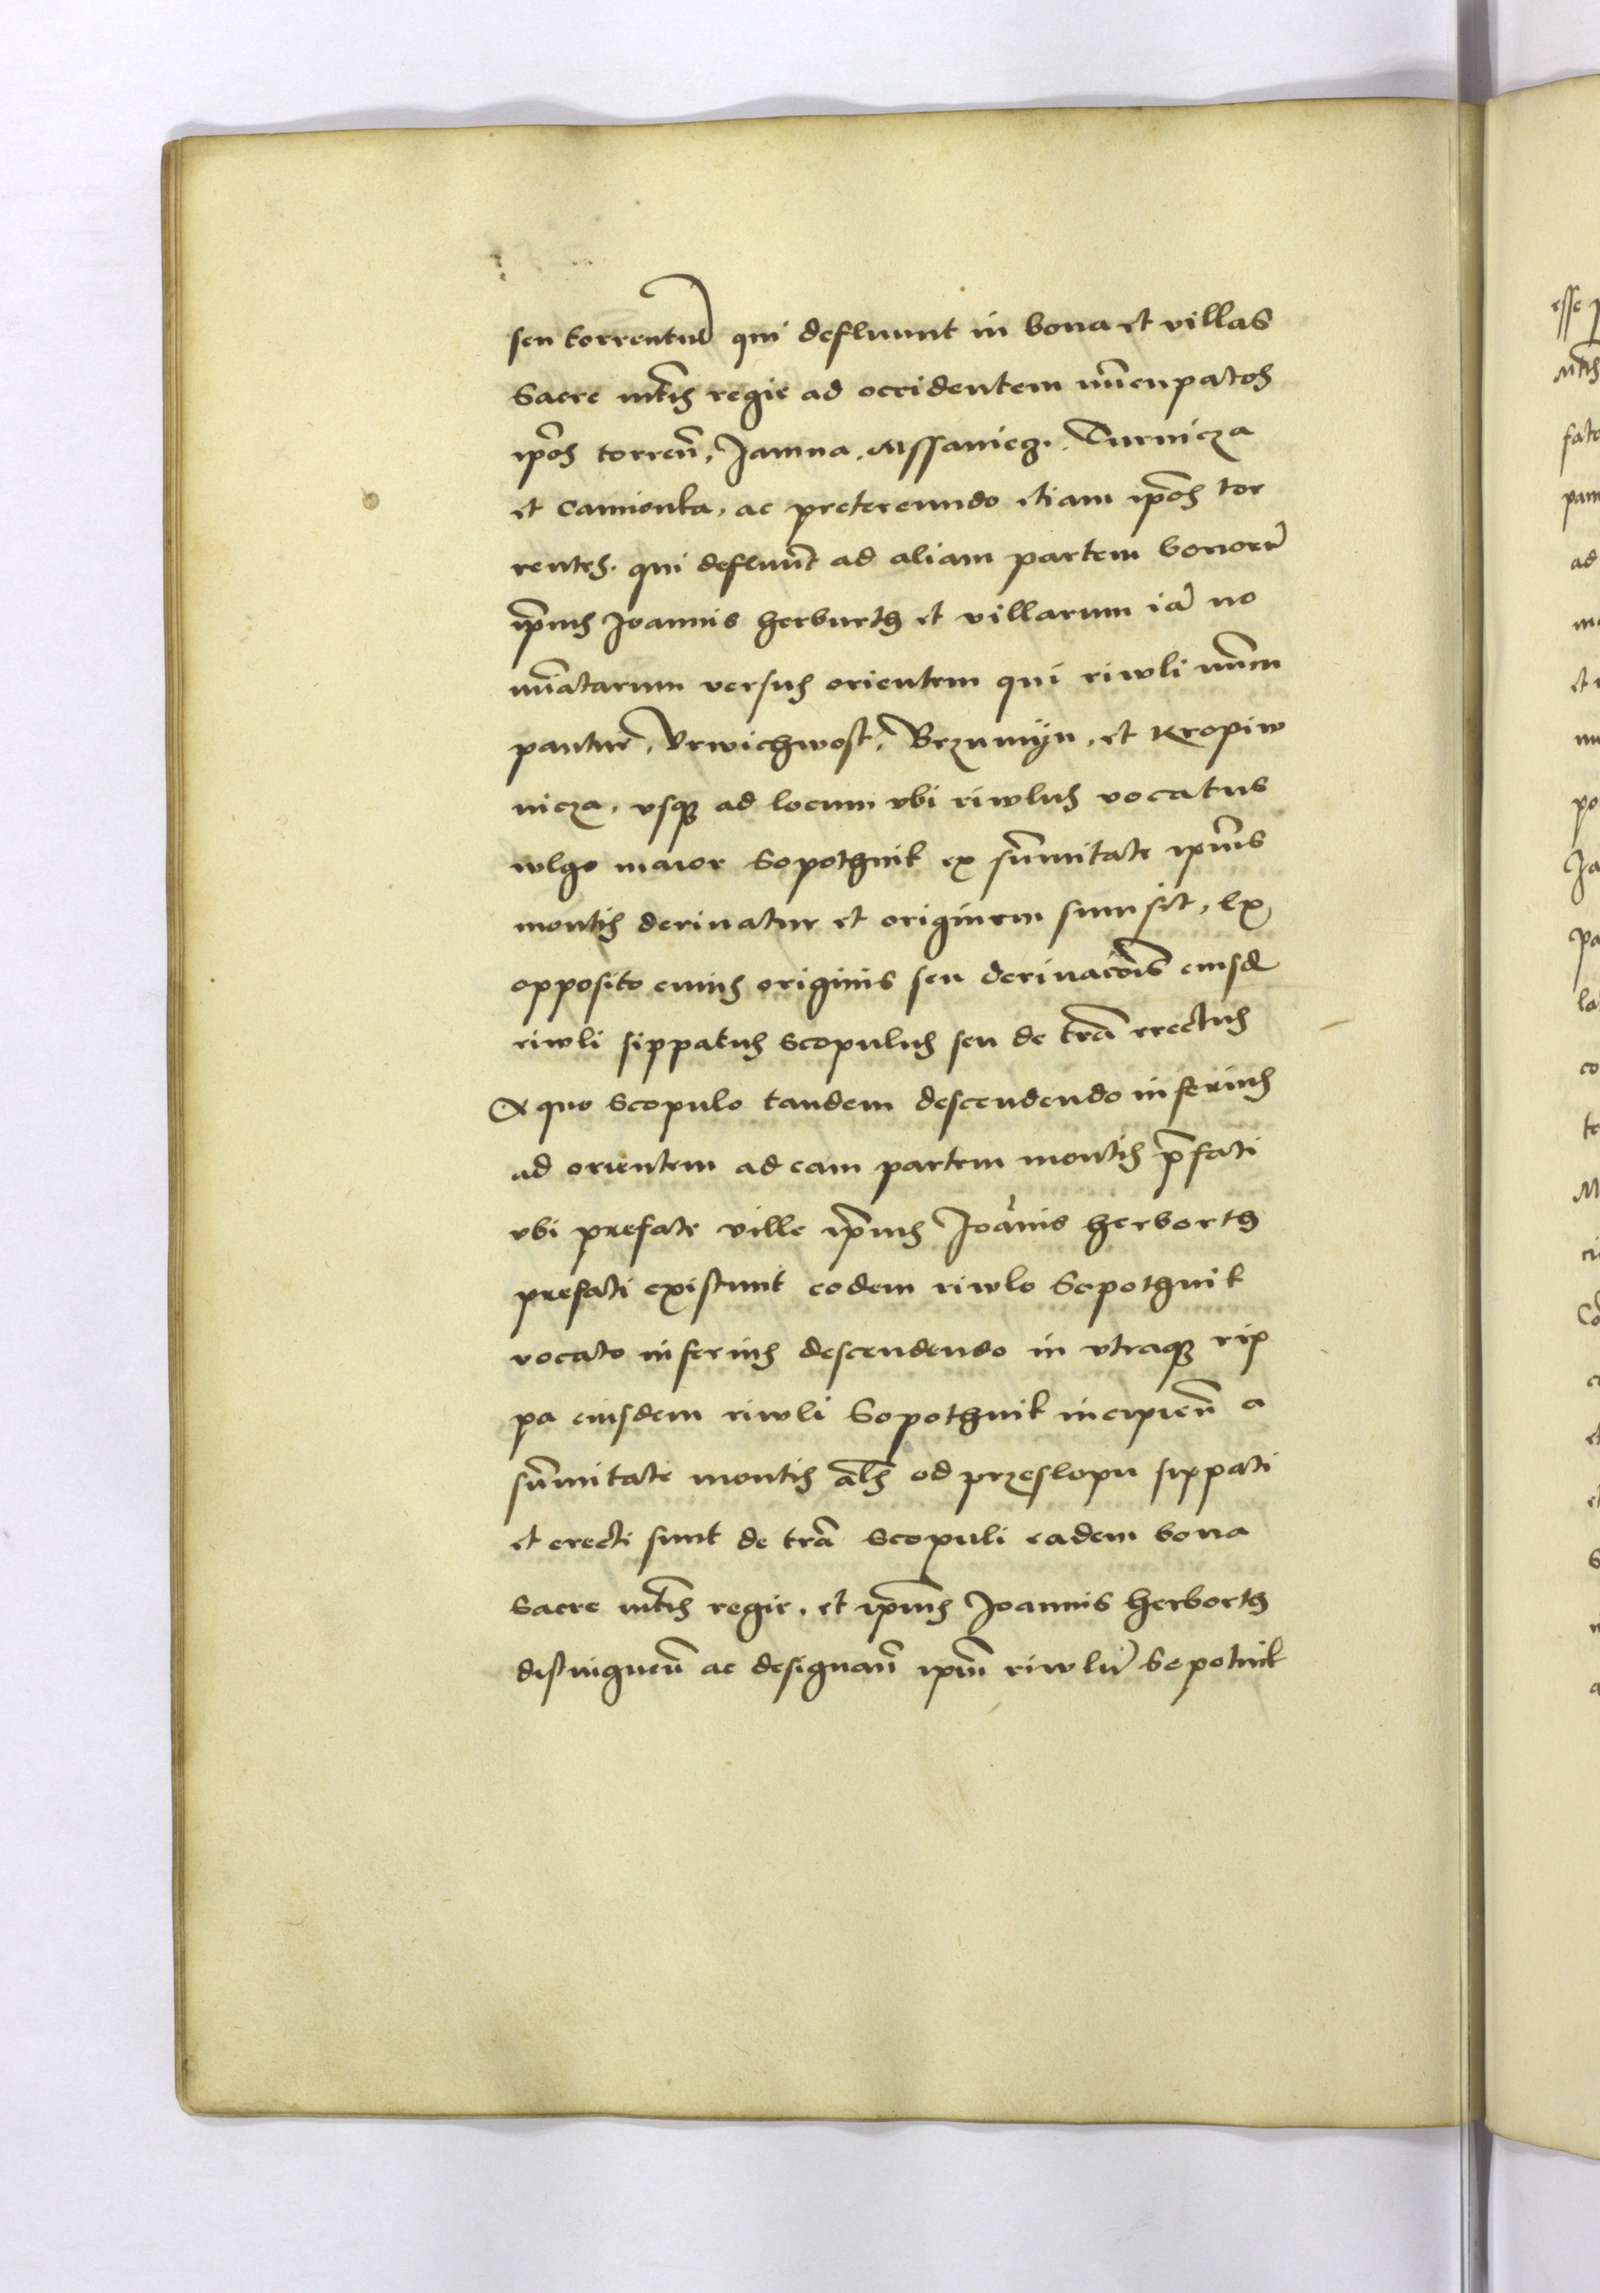 seu torrentum̃ qui defluunt in bona et villas
Sacre mtis̃ regie ad occidentem nũcupatos
ip̃os torren̄, Jamna, Mssaniecz, Turnicza
et Camionka, ac pretereundo etiam ip̃os tor
rentes, qui defluũt ad aliam partem bonorũ
ip̃ius Joannis herburth et villarum iã no
mĩatarum versus orientem qui riwli nũcu
pantur, Vrwichwost, Brzumÿn, et Kropiw
nicza, vsqꝫ ad locum vbi riwlus vocatus
wlgo maior Sopothnik ex sũmitate ip̃ius
montis deriuatur et originem sumsit, Ex
opposito cuius originis seu deriuacõis eiusd̃
riwli sippatus Scopulus seu de trã erectus
A quo Scopulo tandem descendendo inferius
ad orientem ad eam partem montis p̃fati
vbi prefate ville ip̃ius Joãnis herborth
prefati existunt eodem riwlo Sopothnik
vocato inferius descendendo in vtraqꝫ rip
pa eiusdem riwli Sopothnik incipien̄ a
sũmitate montis als̃ od przeslopu sippati
et erecti sunt de trã Scopuli eadem bona
Sacre mtis̃ regie, et ip̃ius Joannis herborth
distinguen̄ ac designan̄ ip̃m riwlũ Sopotnik
esse
mtis̃
fato
pam
ad
et
po
Ja
pa
co
te